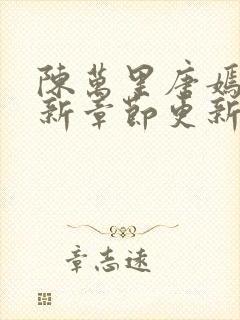 陳萬里唐嫣
新章節更新
章志遠